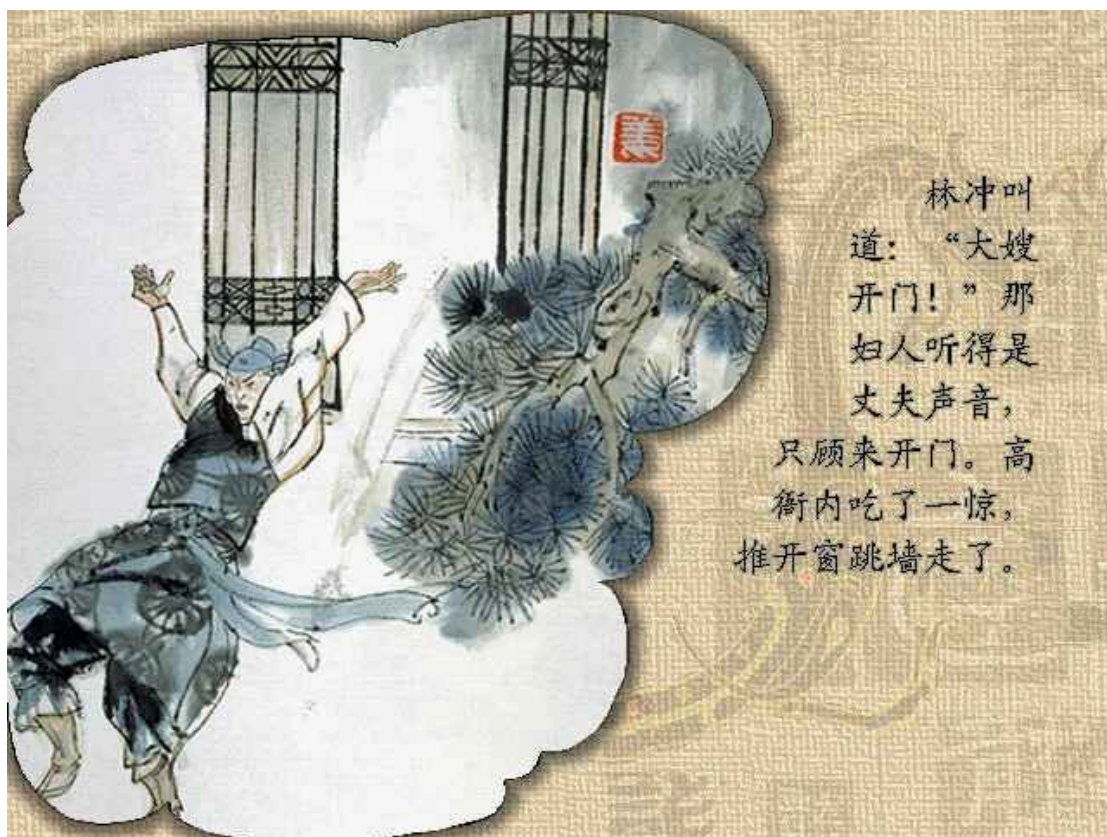 林冲叫
道：“大嫂
开门！”那
妇人听得是
丈夫声音，
只顾来开门。高
衙内吃了一惊，
推开窗跳墙走了。